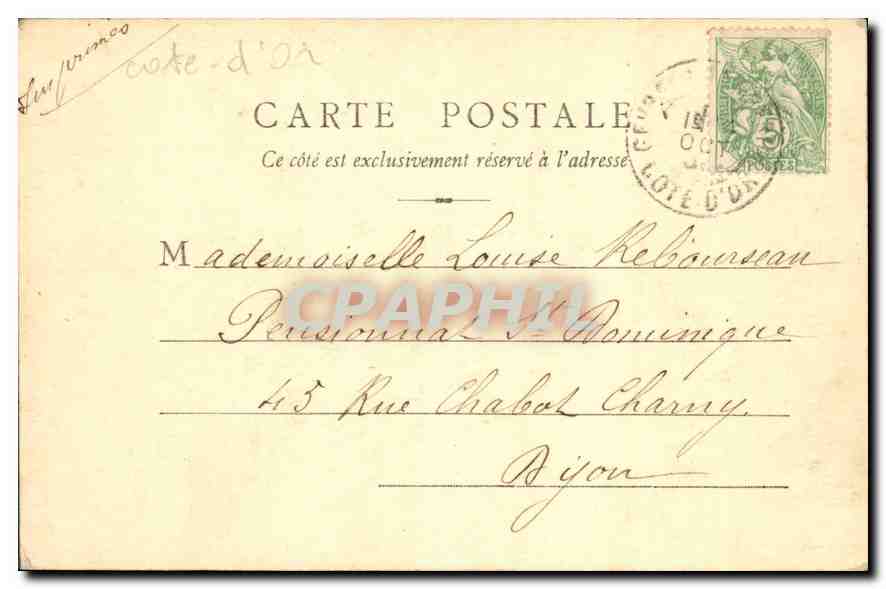 Imprimés
cote-d'Or
CARTE POSTALE
Ce côté est exclusivement réservé à l'adresse
Mademoiselle Louise Rebourseau
Pensionnat St Dominique
45 Rue Chabot Charny
Dijon
CPAPHIL
OCT
COTE-D'OR
5
POSTES